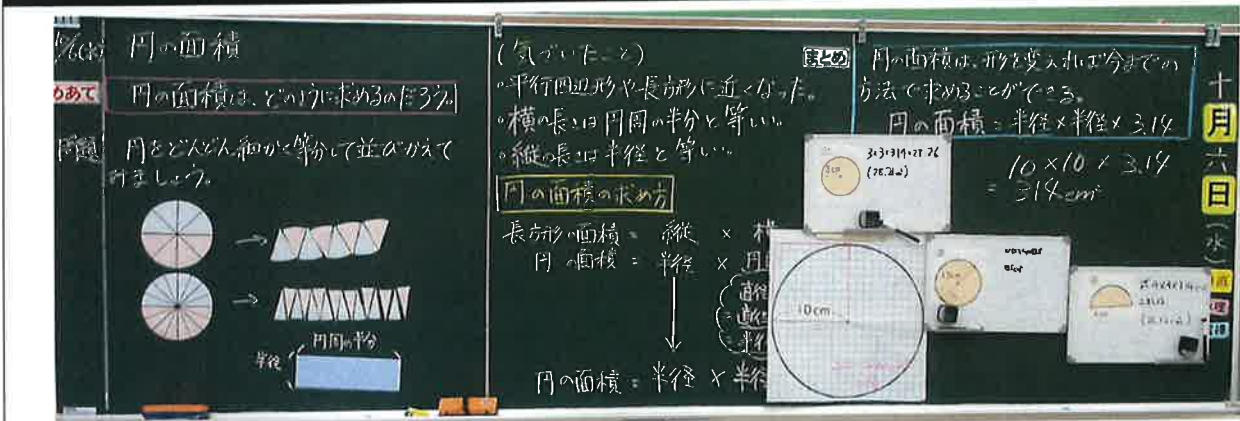 10/6(水) 円の面積
めあて
円の面積は、どのように求めるのだろう。
問題
円をどんどん細かく等分して並びかえて
みましょう。
円周の半分
半径
(気づいたこと)
・平行四辺形や長方形に近くなった。
・横の長さは円周の半分と等しい。
・縦の長さは半径と等しい。
円の面積の求め方
長方形の面積 = 縦 ×
円の面積 = 半径 ×
円の面積 = 半径 × 半径
まとめ
円の面積は、形を変えれば今までの
方法で求めることができる。
円の面積 = 半径×半径×3.14
10×10×3.14
= 314cm²
3×3×3.14=28.26
10cm
十
月
六
日
(水)